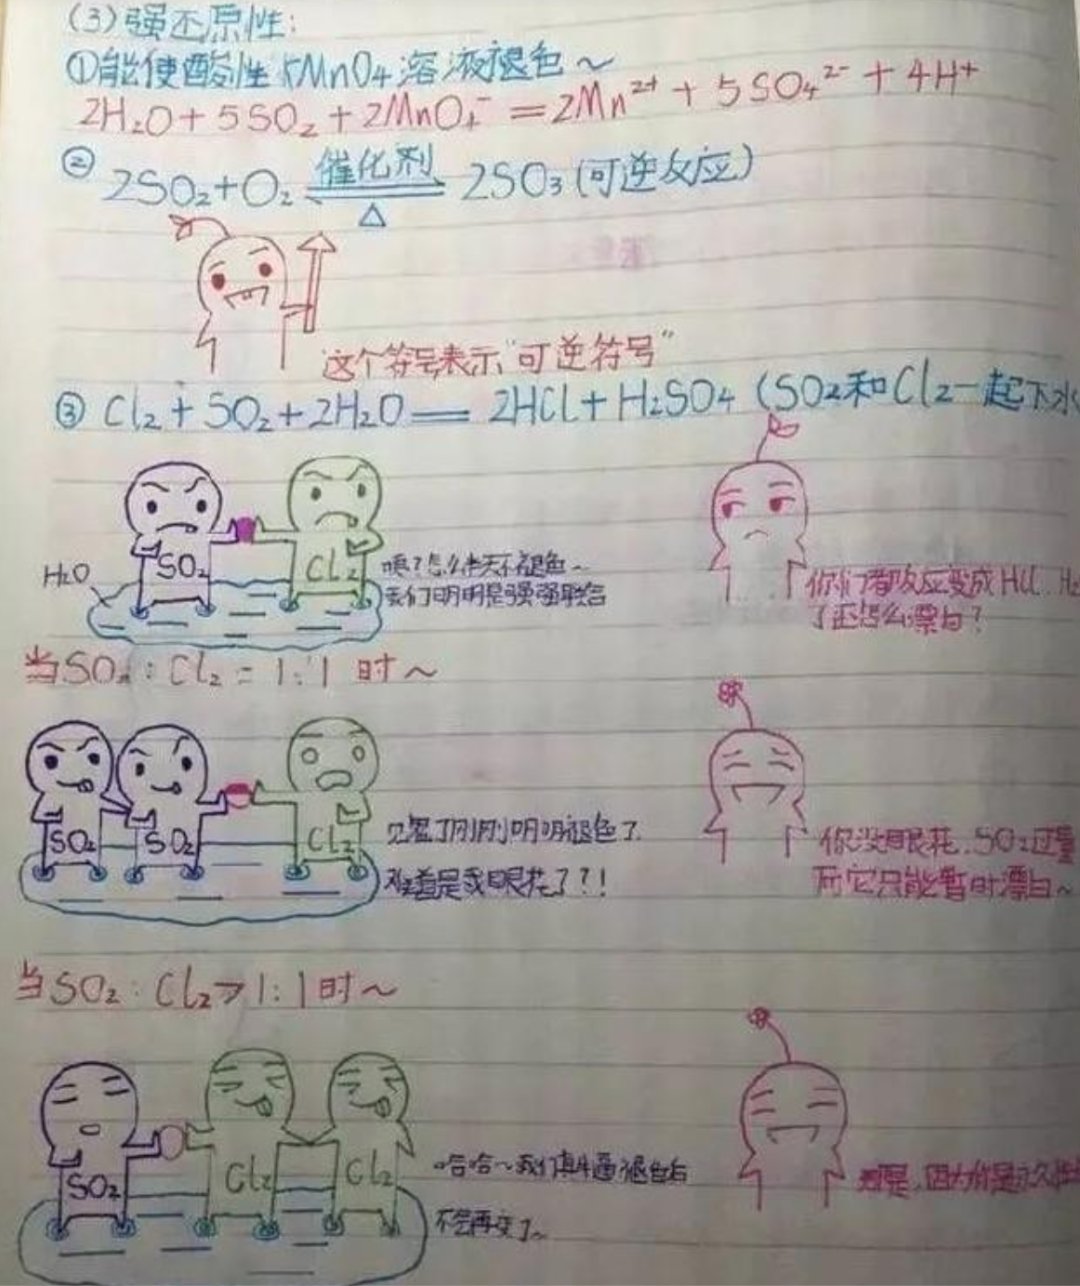 (3)强还原性:
①能使酸性KMnO₄溶液褪色~
2H₂O+5SO₂+2MnO₄⁻=2Mn²⁺+5SO₄²⁻+4H⁺
② 2SO₂+O₂ 催化剂 △ 2SO₃(可逆反应)
"这个符号表示"可逆符号"
③ Cl₂+SO₂+2H₂O=2HCl+H₂SO₄(SO₂和Cl₂一起下水
H₂O
SO₂
Cl₂
咦?怎么半天不褪色~
我们明明是强强联合
你们都反应变成HCl、H₂
了还怎么漂白?
当SO₂:Cl₂=1:1时~
SO₂
SO₂
Cl₂
见鬼了刚刚明明褪色了
难道是我眼花了?!
你没眼花.SO₂过量
而它只能暂时漂白~
当SO₂:Cl₂>1:1时~
SO₂
Cl₂
Cl₂
哈哈~我们真牛逼褪色后
不会再变了~
因为你是永久性